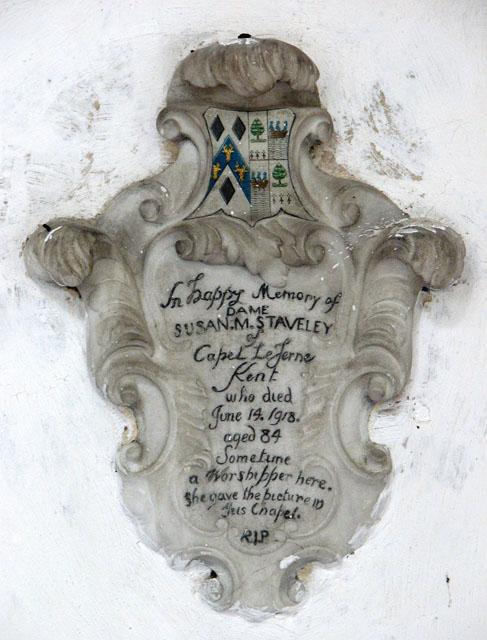 In happy Memory of
DAME
SUSAN. M. STAVELEY
of
Capel Le Ferne
Kent
who died
June 14. 1918.
aged 84
Sometime
a Worshipper here.
She gave the picture in
this Chapel.
R.I.P